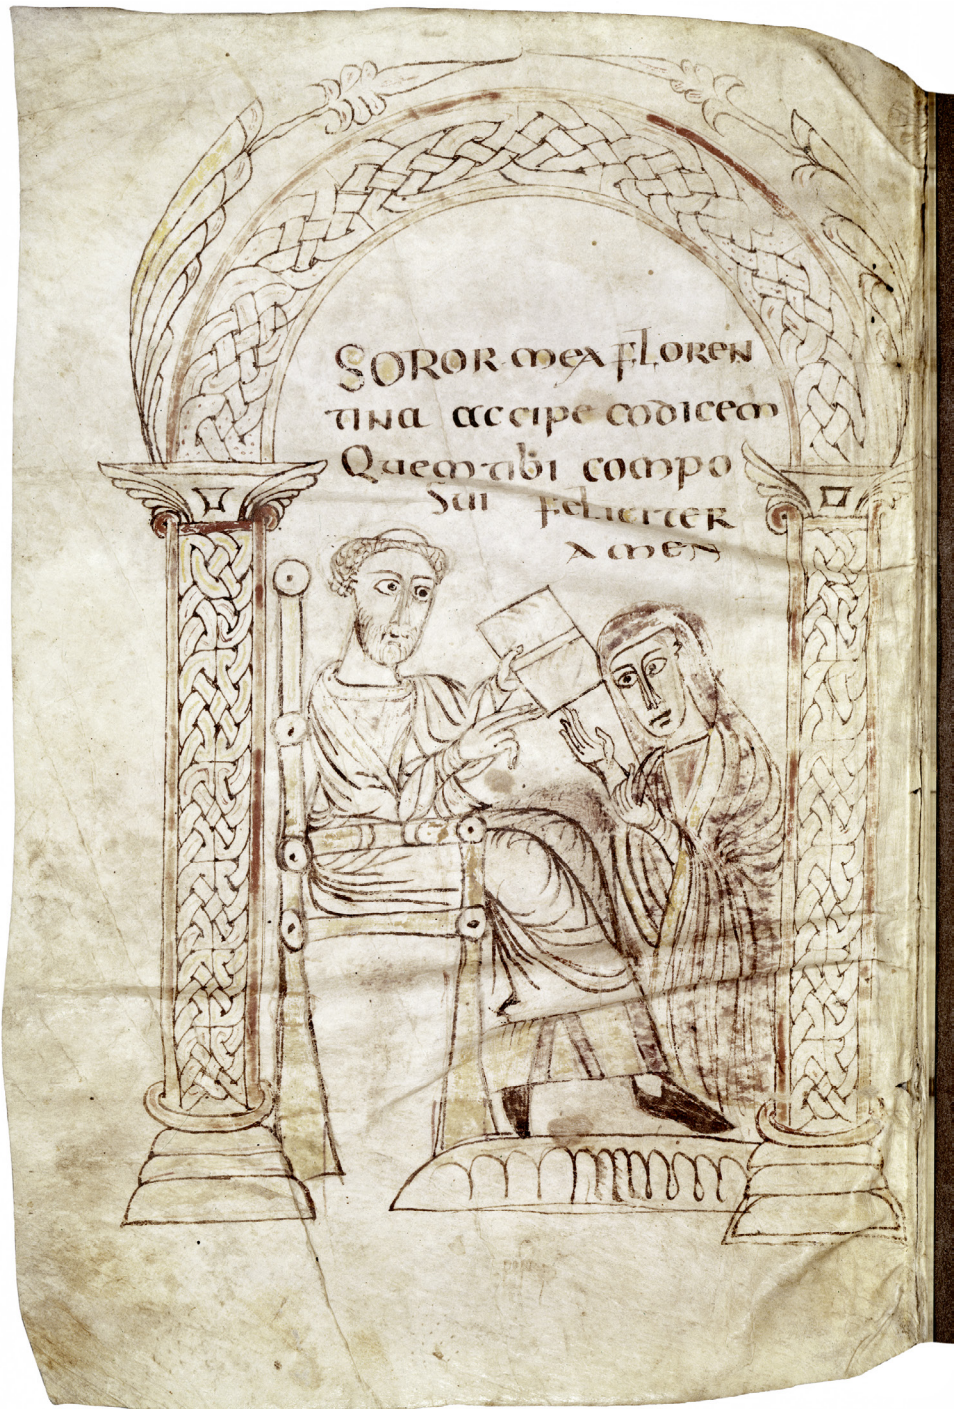 SOROR·mea FLOREN
TINA accipe codicem
Quem tibi compo
Sui feliciter
AMEN